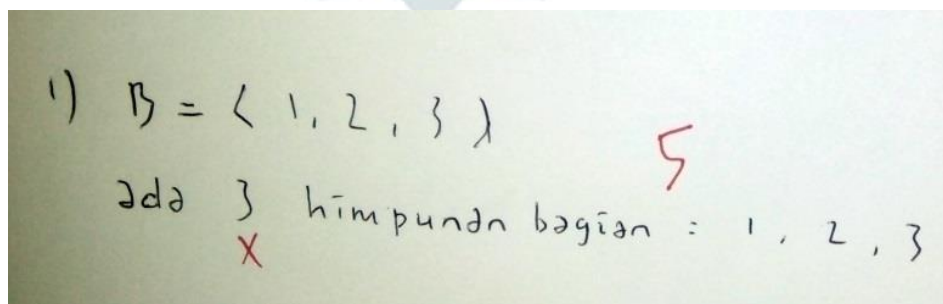 1) B = { 1, 2, 3 }
5
ada 3 himpunan bagian : 1, 2, 3
X